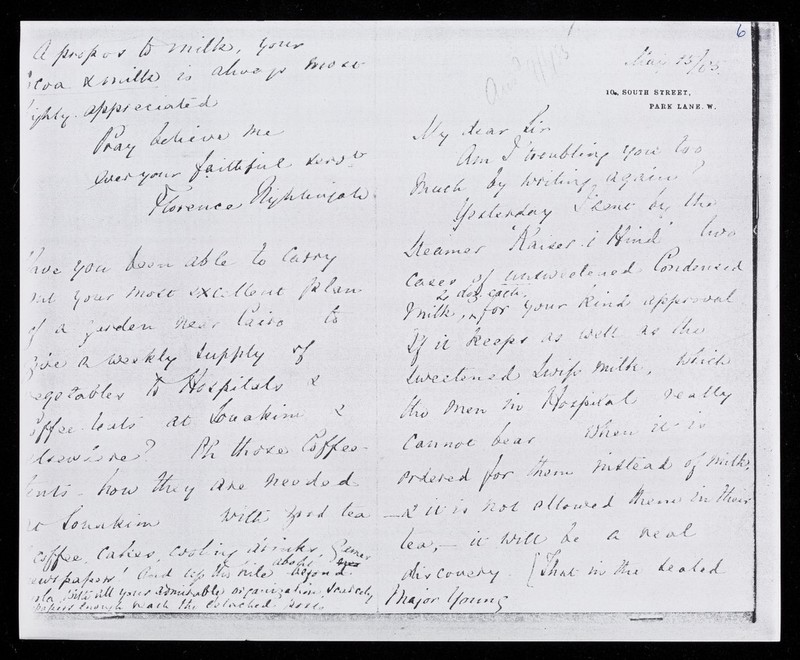 6
May 15/85
10, SOUTH STREET,
PARK LANE. W.
My dear Sir
Am I troubling you too
much by writing again?
Yesterday I sent by the
Steamer "Kaiser-i-Hind" two
cases of unsweetened Condensed
2 doz. each.
Milk, for your kind approval.
If it keeps as well as the
sweetened Swiss milk, which
the men in Hospital really
cannot bear when it is
ordered for them instead of milk,
- & it is not allowed them in their
tea, - it will be a real
discovery [That in the sealed
Major Young
A propos to milk, your
cocoa & milk is always most
highly appreciated
Pray believe me
ever your faithful servt
Florence Nightingale
have you been able to carry
out your most excellent plan
of a garden near Cairo to
give a weekly supply of
vegetables to Hospitals &
Coffee-tents at Souakim &
elsewhere? Oh those Coffee-
tents - how they are needed
Souakim with good tea
coffee, cakes, cooling drinks, games
newspapers! And up the Nile beyond
above
with all your admirable organization, scarcely
papers enough reach the detached posts